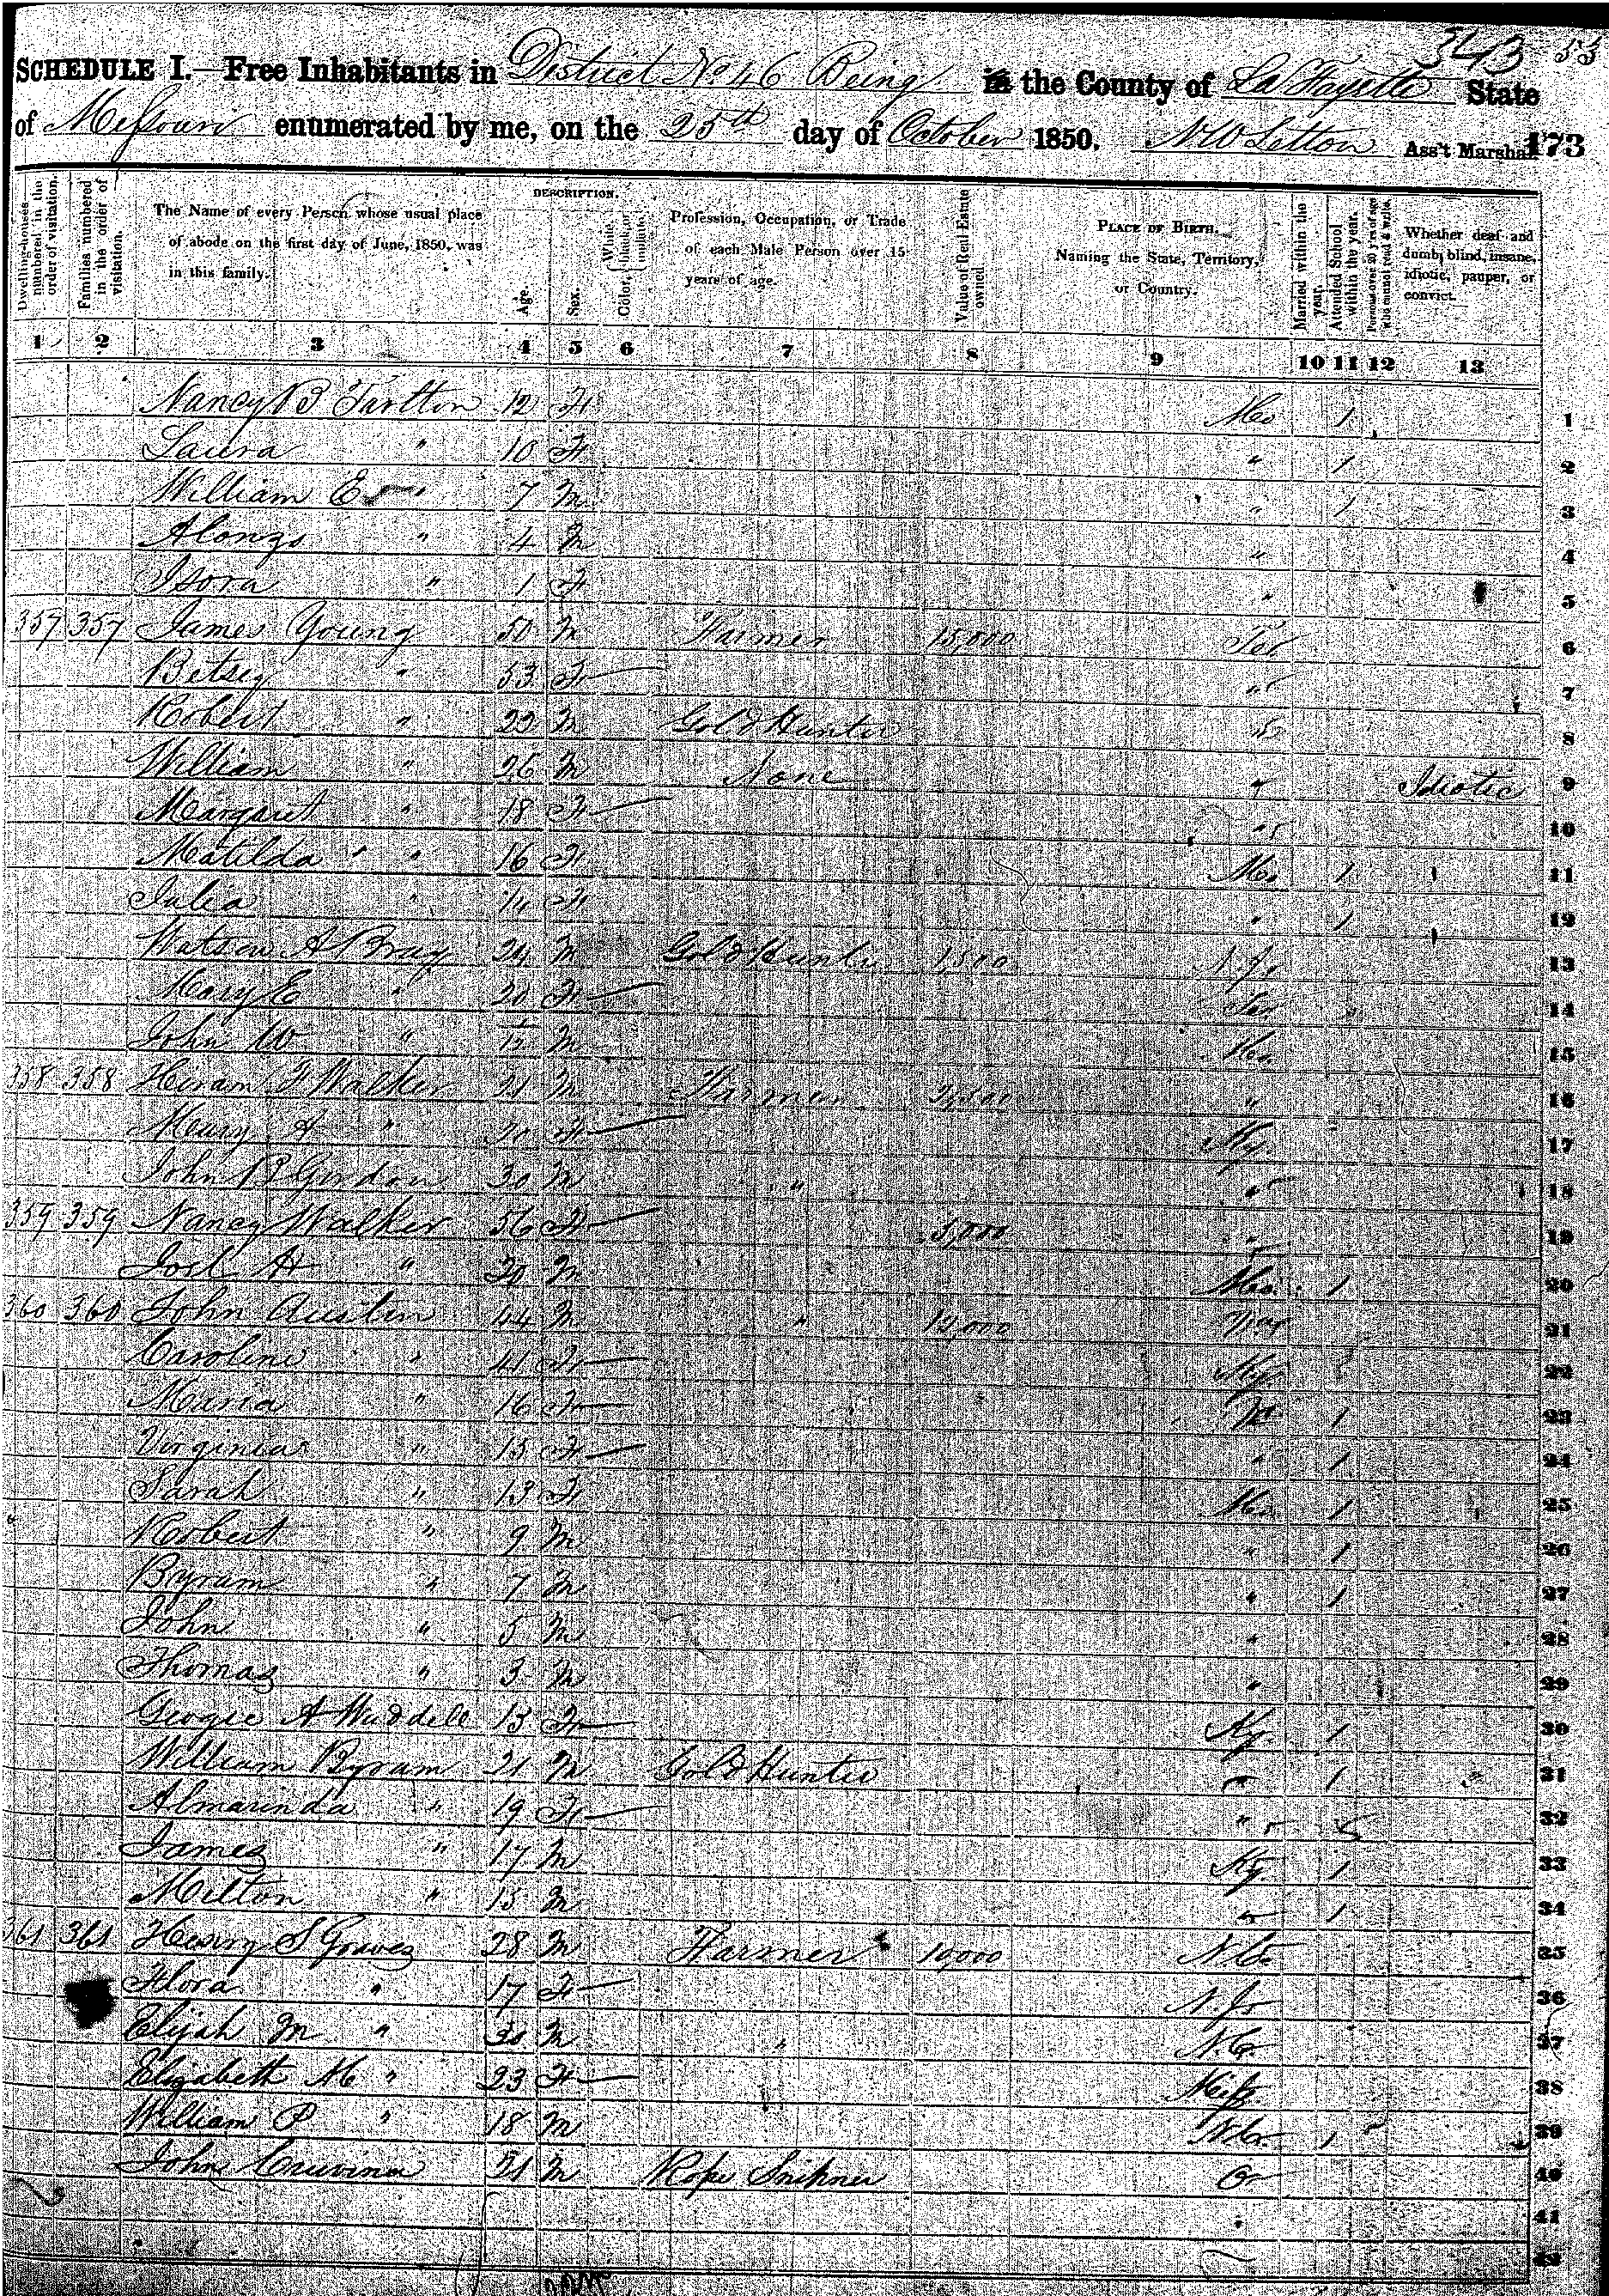 343 53
SCHEDULE I.—Free Inhabitants in District No 46 Being in the County of La Fayette State
of Missouri enumerated by me, on the 25th day of October 1850. N W Letton Ass't Marshal. 173
Dwelling-houses numbered in the order of visitation.
Families numbered in the order of visitation.
The Name of every Person whose usual place of abode on the first day of June, 1850, was in this family.
DESCRIPTION.
Age.
Sex.
Color, White, black, or mulatto.
Profession, Occupation, or Trade of each Male Person over 15 years of age.
Value of Real Estate owned.
PLACE OF BIRTH. Naming the State, Territory, or Country.
Married within the year.
Attended School within the year.
Persons over 20 y'rs of age who cannot read & write.
Whether deaf and dumb, blind, insane, idiotic, pauper, or convict.
1 2 3 4 5 6 7 8 9 10 11 12 13
Nancy B Tarlton 12 F Mo 1 1
Laura " 10 F " 1 2
William E " 7 M " 1 3
Alonzo " 4 M " 4
Isora " 1 F " 5
357 357 James Young 50 M Farmer 15,000 6
Betsey " 53 F " 7
Robert " 22 M Gold Hunter " 8
William " 26 M None " Idiotic 9
Margaret " 18 F " 10
Matilda " 16 F Mo 1 11
Julia " F " 1 12
Watson A Bray M Gold Hunter 1,500 N.J. 13
Mary E " 20 F 14
John W " M Mo 15
358 358 Hiram F Walker M Farmer " 16
A " 20 F Ky. 17
John B Gordon 30 M " " 18
359 359 Nancy Walker 56 F 5,000 " 19
H " 20 M Mo. 1 20
360 360 John Austin 44 M " 12,000 21
Caroline " 41 F Ky 22
Maria " 16 F 1 23
Virginia " 15 F " 1 24
Sarah " 13 F Mo 1 25
Robert " 9 M " 1 26
Byram " 7 M " 1 27
John " 5 M " 28
Thomas " 3 M " 29
Georgie A Waddell 13 F Ky 1 30
William Byram 21 M Gold Hunter " 1 31
Almarinda " 19 F " 32
James " 17 M Ky. 1 33
Milton " 15 M " 1 34
361 361 Henry S Graves 28 M Farmer 10,000 N.C. 35
Flora " 17 F N.J. 36
Elijah M " M " N.C. 37
Elizabeth M " 23 F Miss. 38
William P " 18 M N.C. 1 39
John M Rope O 40
41
42